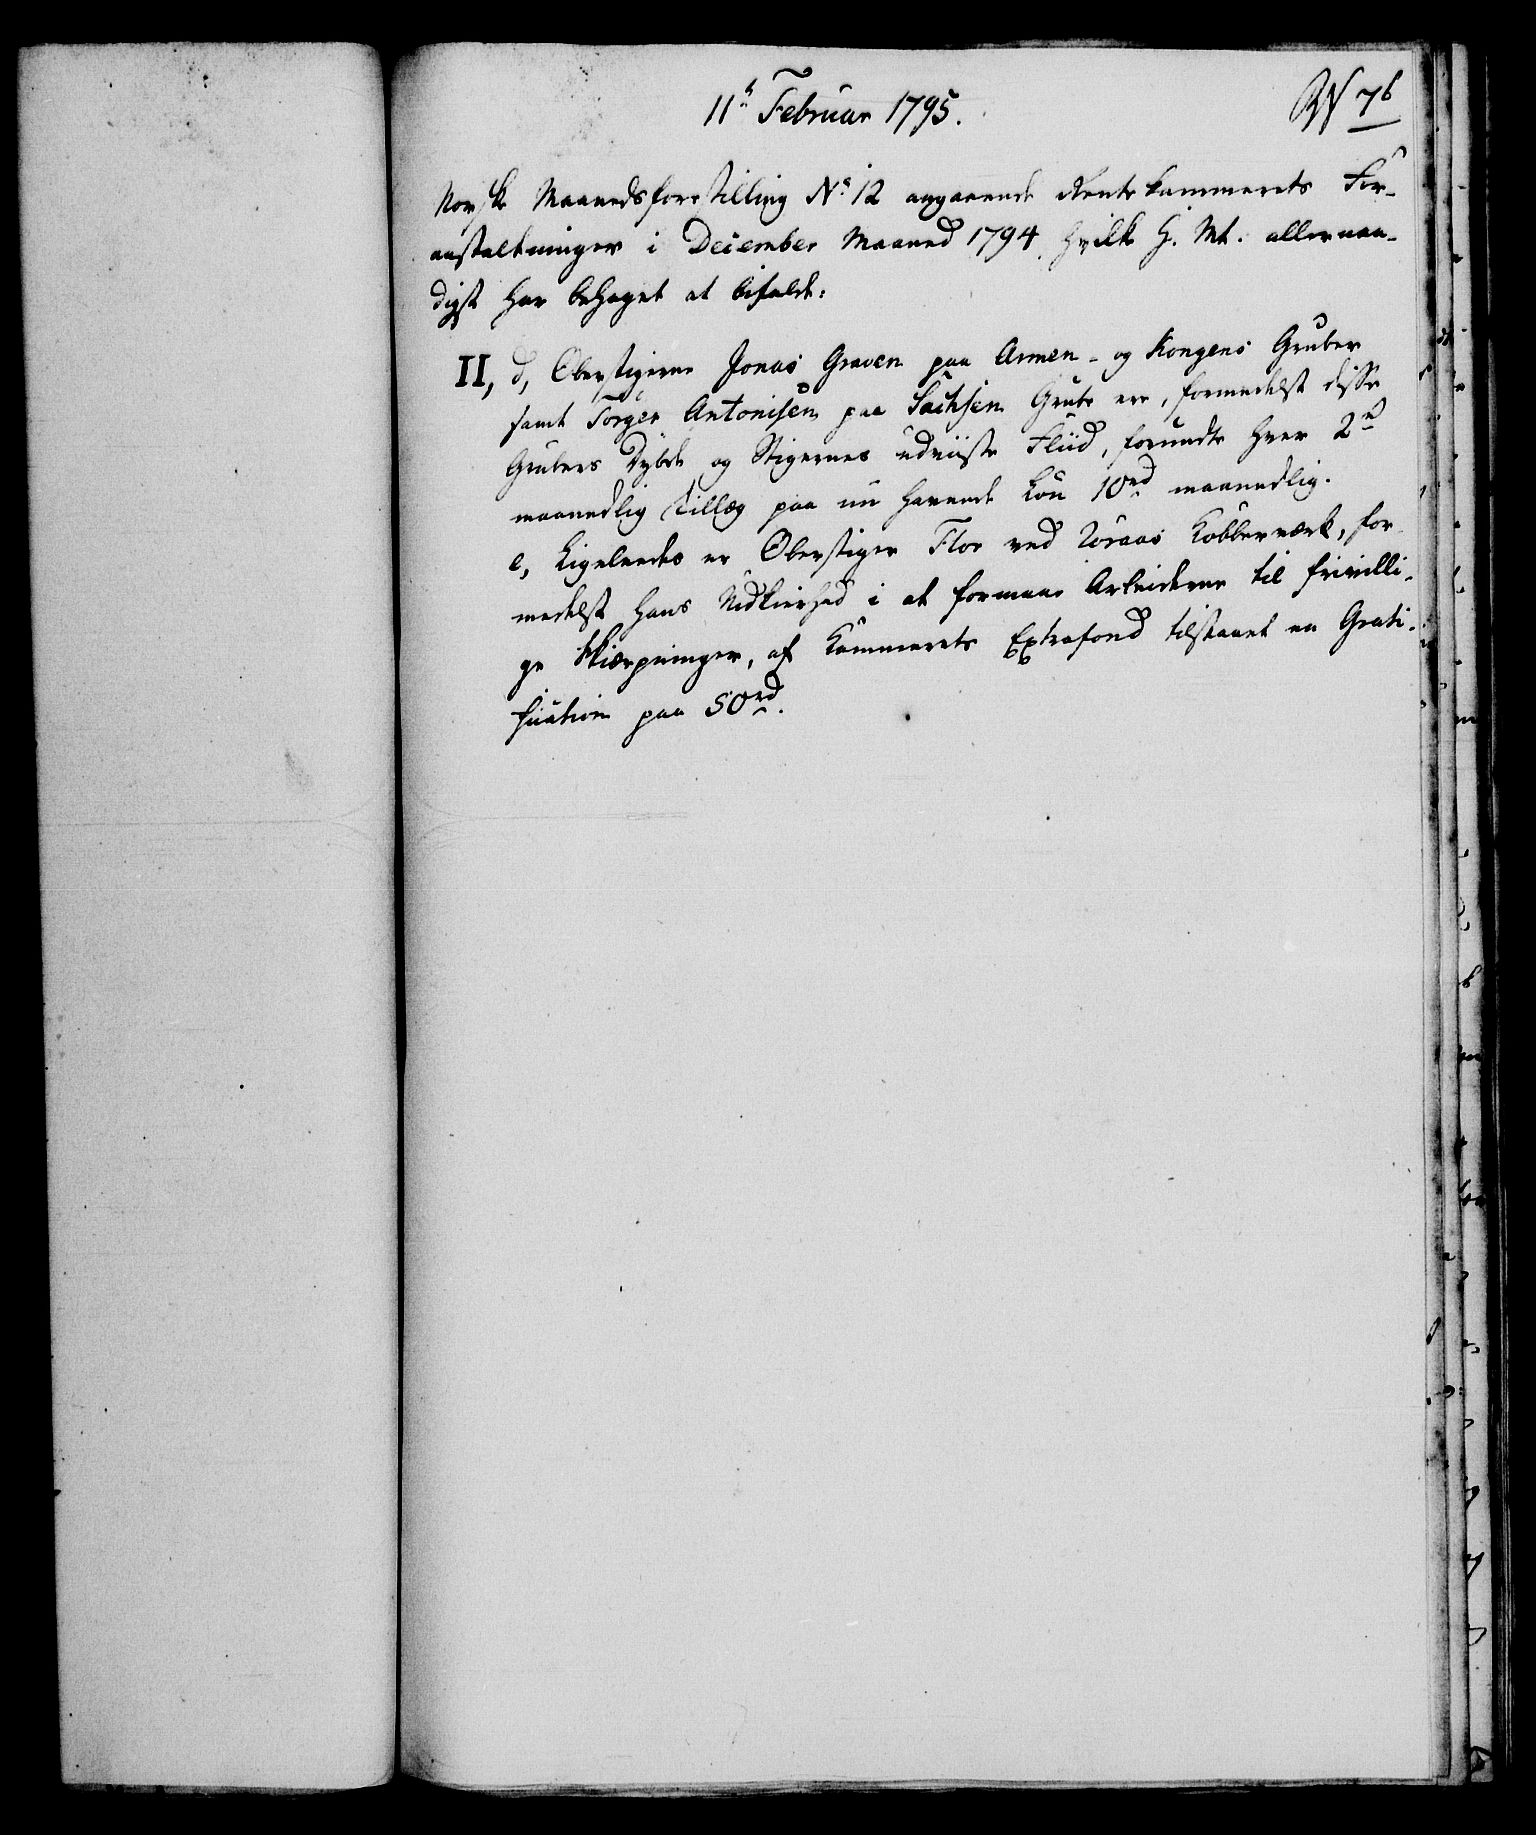 11te Februar 1795.
RN 7b
Norske Maanedsforestilling No 12 angaaende Rentekammerets For-
anstaltninger i December Maaned 1794, hvilke H. Mt. allernaa-
digst har behaget at bifalde:
II, d, Oberstigerne Jonas Graven paa Armen- og Kongens Gruber
samt Torger Antonisen paa Sachsen Grube ere, formedelst disse
Grubers Dybde og Stigernes udviiste Fliid, forundte hver 2rd
maanedlig Tillæg paa nu havende Løn 10rd maanedlig.
e, Ligeledes er Oberstiger Flor ved Röraas Kobberværk, for-
medelst hans Nidkierhed i at formaae Arbeiderne til frivilli-
ge Skiærpninger, af Kammerets Extrafond tilstaaet en Grati-
fication paa 50rd.